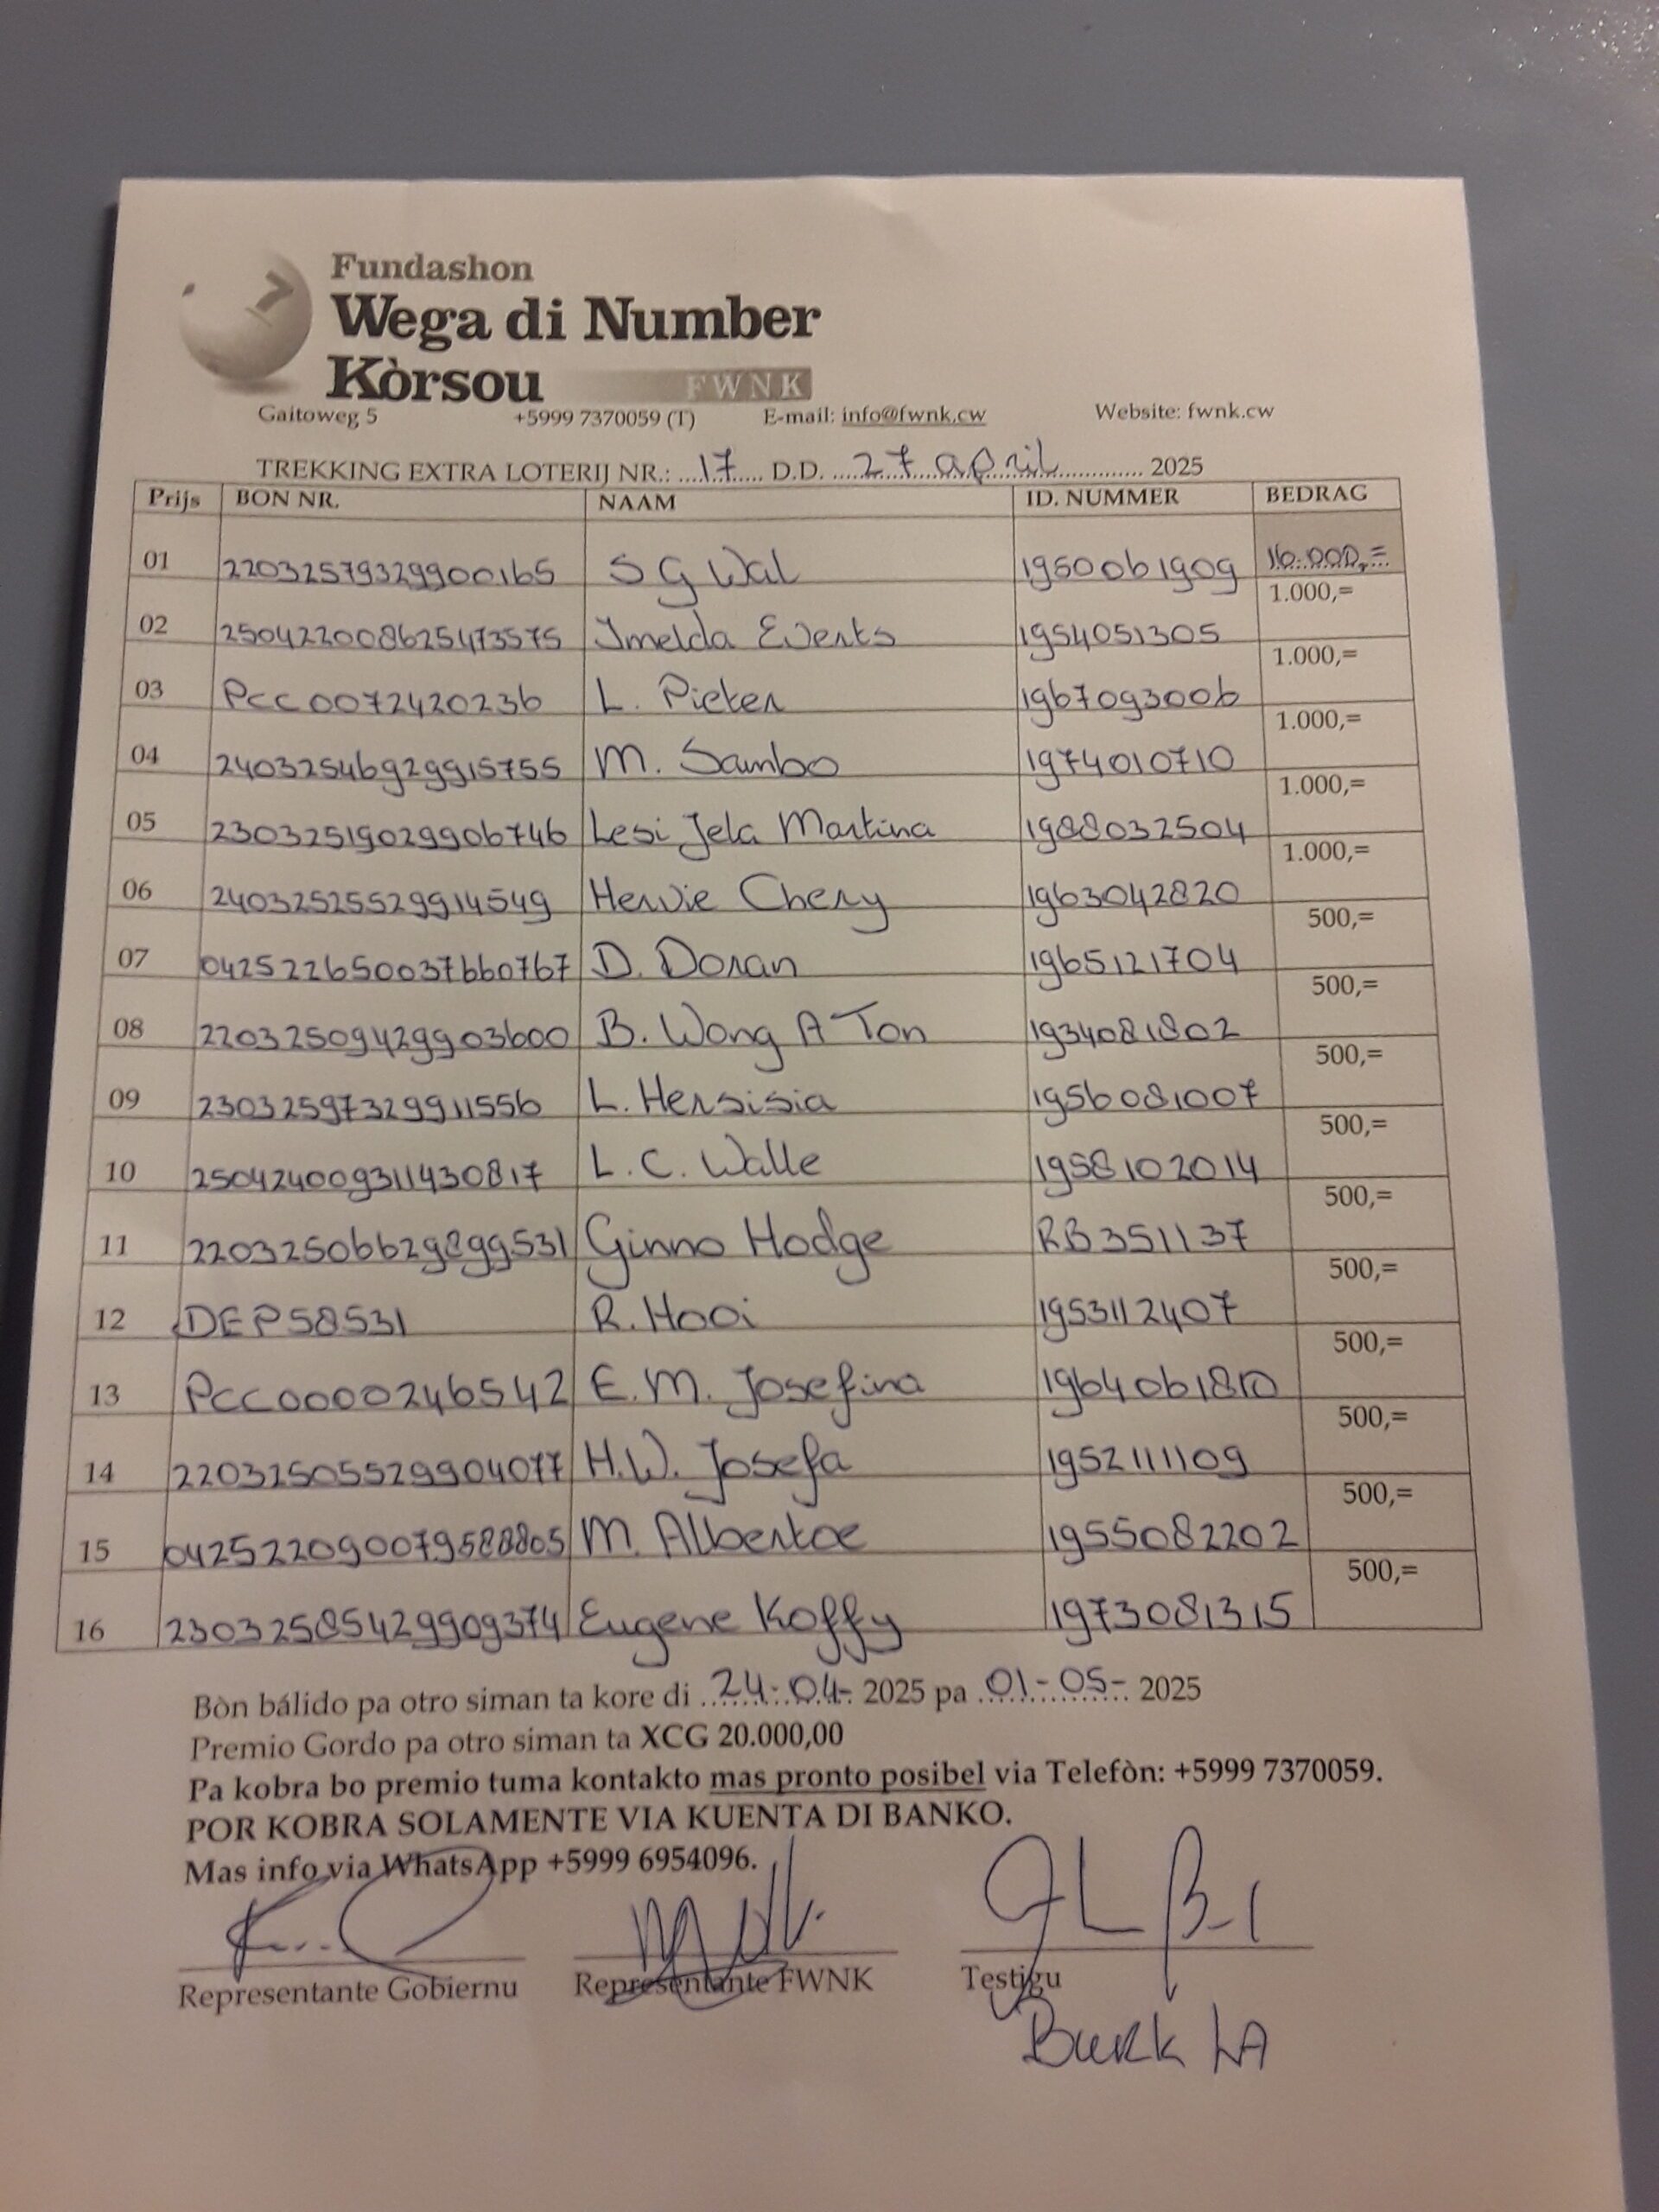 Fundashon
Wega di Number
Kòrsou FWNK
Gaitoweg 5 +5999 7370059 (T) E-mail: info@fwnk.cw Website: fwnk.cw
TREKKING EXTRA LOTERIJ NR.: ....17.... D.D. ...27 april............ 2025
Prijs BON NR. NAAM ID. NUMMER BEDRAG
01 22032579329900165 S G Wal 1950061909 10.000,=
02 250422008625473575 Imelda Everts 1954051305 1.000,=
03 PCC0072420236 L. Pieter 1967093006 1.000,=
04 24032546929915755 M. Sambo 1974010710 1.000,=
05 23032519029906746 Lesi Jela Martina 1988032504 1.000,=
06 24032525529914549 Hervie Chery 1963042820 1.000,=
07 042522650037660767 D. Doran 1965121704 500,=
08 22032509429903600 B. Wong A Ton 1934081802 500,=
09 23032597329911556 L. Hersisia 1956081007 500,=
10 250424009311430817 L.C. Walle 1958102014 500,=
11 22032506629899531 Ginno Hodge RB351137 500,=
12 DEP58531 R. Hooi 1953112407 500,=
13 PCC0000246542 E.M. Josefina 1964061810 500,=
14 22032505529904077 H.W. Josefa 1952111109 500,=
15 042522090079588805 M. Albertoe 1955082202 500,=
16 23032585429909374 Eugene Koffy 1973081315 500,=
Bòn bálido pa otro siman ta kore di ..24-04-. 2025 pa .01-05-. 2025
Premio Gordo pa otro siman ta XCG 20.000,00
Pa kobra bo premio tuma kontakto mas pronto posibel via Telefòn: +5999 7370059.
POR KOBRA SOLAMENTE VIA KUENTA DI BANKO.
Mas info via WhatsApp +5999 6954096.
Representante Gobiernu Representante FWNK Testigu
Burk LA